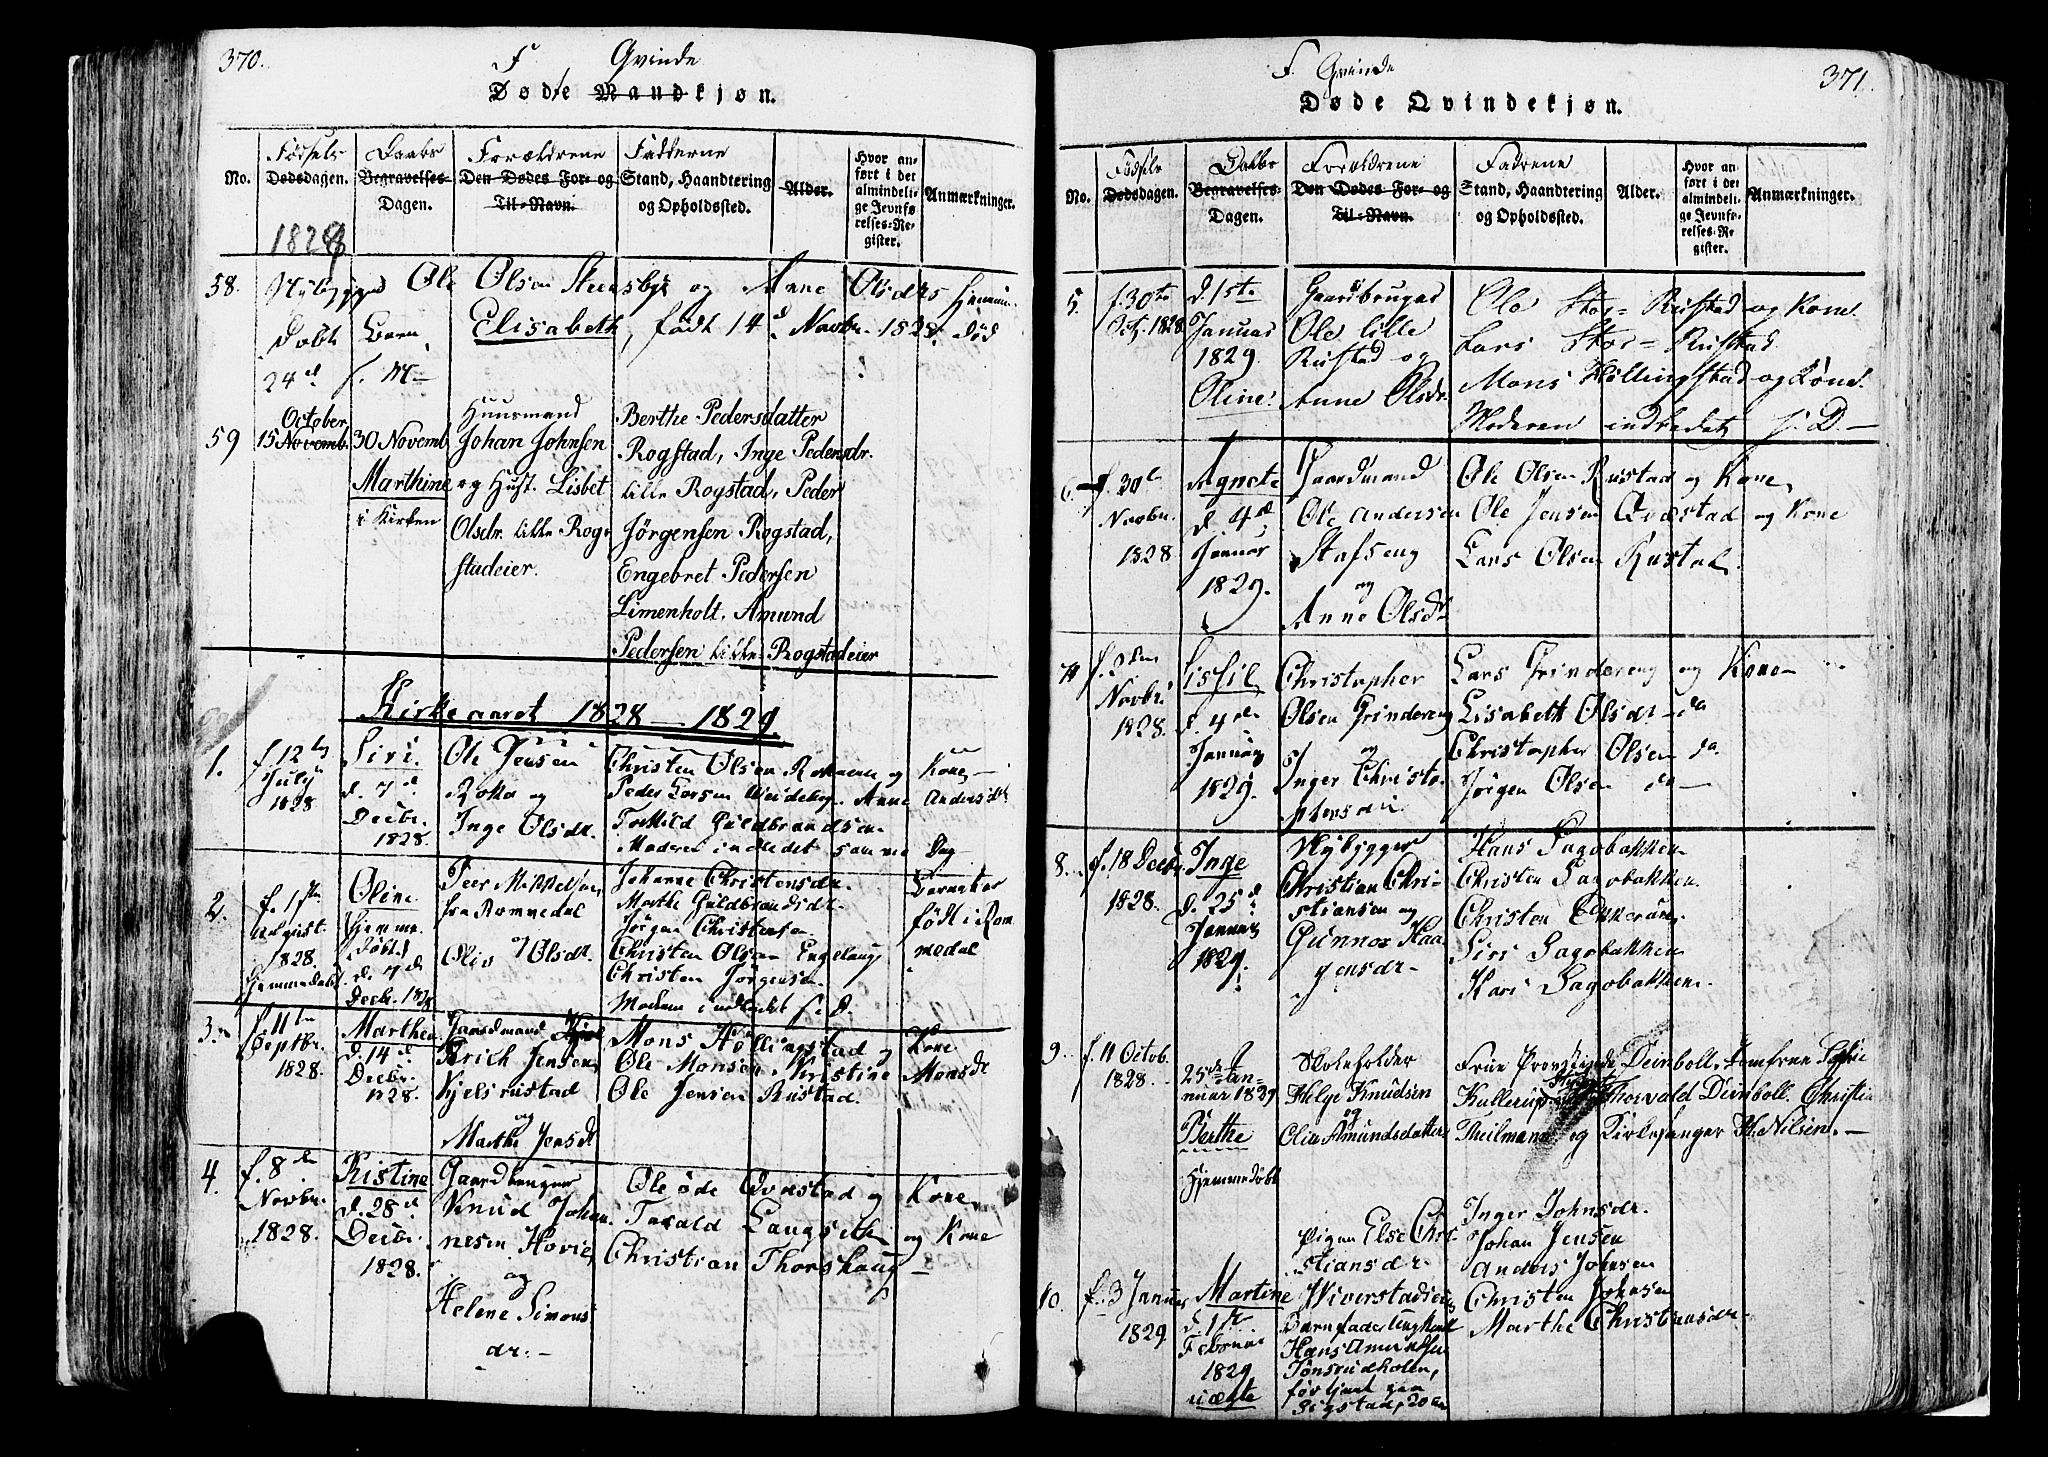 370.
F Qvinde
Døde Mandkjøn.
No.
Fødsels
Dødsdagen.
1828
Daabs
Begravelses-
Dagen.
Forældrene
Den Dødes For- og
Til-Navn.
Fadderne
Stand, Haandtering
og Opholdssted.
Alder.
Hvor an-
ført i det
almindeli-
ge Jevnfø-
relses-Re-
gister.
Anmærkninger.
58. Nybygger Ole Olsen og Anne Olsdrs Hjemme
Døbt Barn Elisabeth, født 14d Novbr. 1828. Død
24d
59
October
15 Novemb.
30 Novemb.
Marthine
i Kirken
Huusmand
Johan Johnsen
og Hust. Lisbet
Olsdr. lille Rog-
stadeier.
Berthe Pedersdatter
Rogstad, Inge Pedersdr.
lille Rogstad, Peder
Jörgensen Rogstad,
Engebret Pedersen
Limenholt, Amund
Pedersen lille Rogstadeier
Kirkeaaret 1828-1829.
1.
f. 12te
July
1828
Siri.
d. 7d
Decbr.
1828.
Ole Jensen
og
Inge Olsdr.
Christen Olsen og Kone
Peder Larsen Anne Andersdtr
Guldbrandsen
Moderen indledet samme Dag
2.
f. 1ste
August.
1828
Hjemmedøbt
Oline
Hjemme
Døbt
d. 7d
Decbr. 1828
Peer Mikkelsen
fra Rommedal
Olsdr.
Johanne Christensdr.
Marthe Guldbrandsdr
Jörgen Christensen
Christen Olsen Engelaug
Christen Jörgensen
Moderen indledet s. D.
Barnet er
født i Rom
medal
3.
f. 11te
Septbr.
1828.
Marthea
d. 14d
Decbr.
1828.
Gaardmand
Erich Jensen
Kjelsrustad
og
Marthe Jensdr
Mons Höllingstad og Kone
Ole Monsen Kristine Monsdr
Ole Jensen Rustad.
4.
f. 8de
Novbr.
1828.
Kistine
d. 28d
Decbr.
1828.
Gaardbruger
Knud Johan-
nesen Hovie,
og
Helene Simons
dr.
Ole öde Qvæstad og Kone
Tarald Langseth og Kone
Christian Thorshaug
371
F. Qvinde
Døde Qvindekjøn.
No.
Fødsels
Dødsdagen.
Daabs
Begravelses-
Dagen.
Forældrene
Den Dødes For- og
Til-Navn.
Fadrene
Stand, Haandtering
og Opholdssted.
Alder.
Hvor an-
ført i det
almindeli-
ge Jevnfø-
relses-Re-
gister.
Anmærkninger.
5.
f. 30te
Octb. 1828
d. 1ste
Januar
1829.
Oline.
Gaardbruger
Ole lille
Rustad og
Anne Olsdr
Ole Stor-Rustad og Kone
Lars Stor-Rustad
Mons Höllingstad og Kone.
Moderen indledet s. D.
6.
f. 30te
Novbr.
1828
Agnete
d. 4de
Januar
1829.
Gaardmand
Ole Andersen
Stafseng
og
Anne Olsdr
Ole Olsen Rustad og Kone,
Ole Jensen Qvæstad og Kone
Lars Olsen Rustad.
7
Novbr
1828.
Lisfil
d. 4de
Januar
1829.
Christopher
Olsen Grindereng
og
Inger Christo-
phersdr
Lars Grindereng og Kone
Lisabeth Olsdr da
Christopher Olsen da.
Jörgen Olsen da
8.
f. 18 Decbr
1828.
Inge
d. 25d
Januar
1829.
Nybygger
Christian Chri-
stiansen og
Gunnor Haa-
gensdr
Hans Sagobakken
Christen Sagobakken.
Christen Ekkeröen,
Siri Sagobakken
Kari Sagobakken.
9.
f. 11 Octob.
1828.
25de Jan-
nuar 1829
Berthe
Hjemmedöbt
Skoleholder
Helge Knudsen
og
Olia Amundsdatter
Frue Provstinde Deinboll, Jomfrue Sophie
Kullerup Thorvald Deinboll. Christi
Theilmann og Kirkesanger H. Nilsen.
10.
f. 3 Januar
1829
Martine
d. 1ste
Februar
1829
uægte
Pigen Else Chri-
stiansdr
Barnefader Ungkarl
Hans Amundsen
Tönsrudholen,
för tjent paa
Sigstad, 20 aar
Inger Johnsdr.
Johan Jensen
Anders Johnsen
Christen Johnsen
Marthe Christensdr